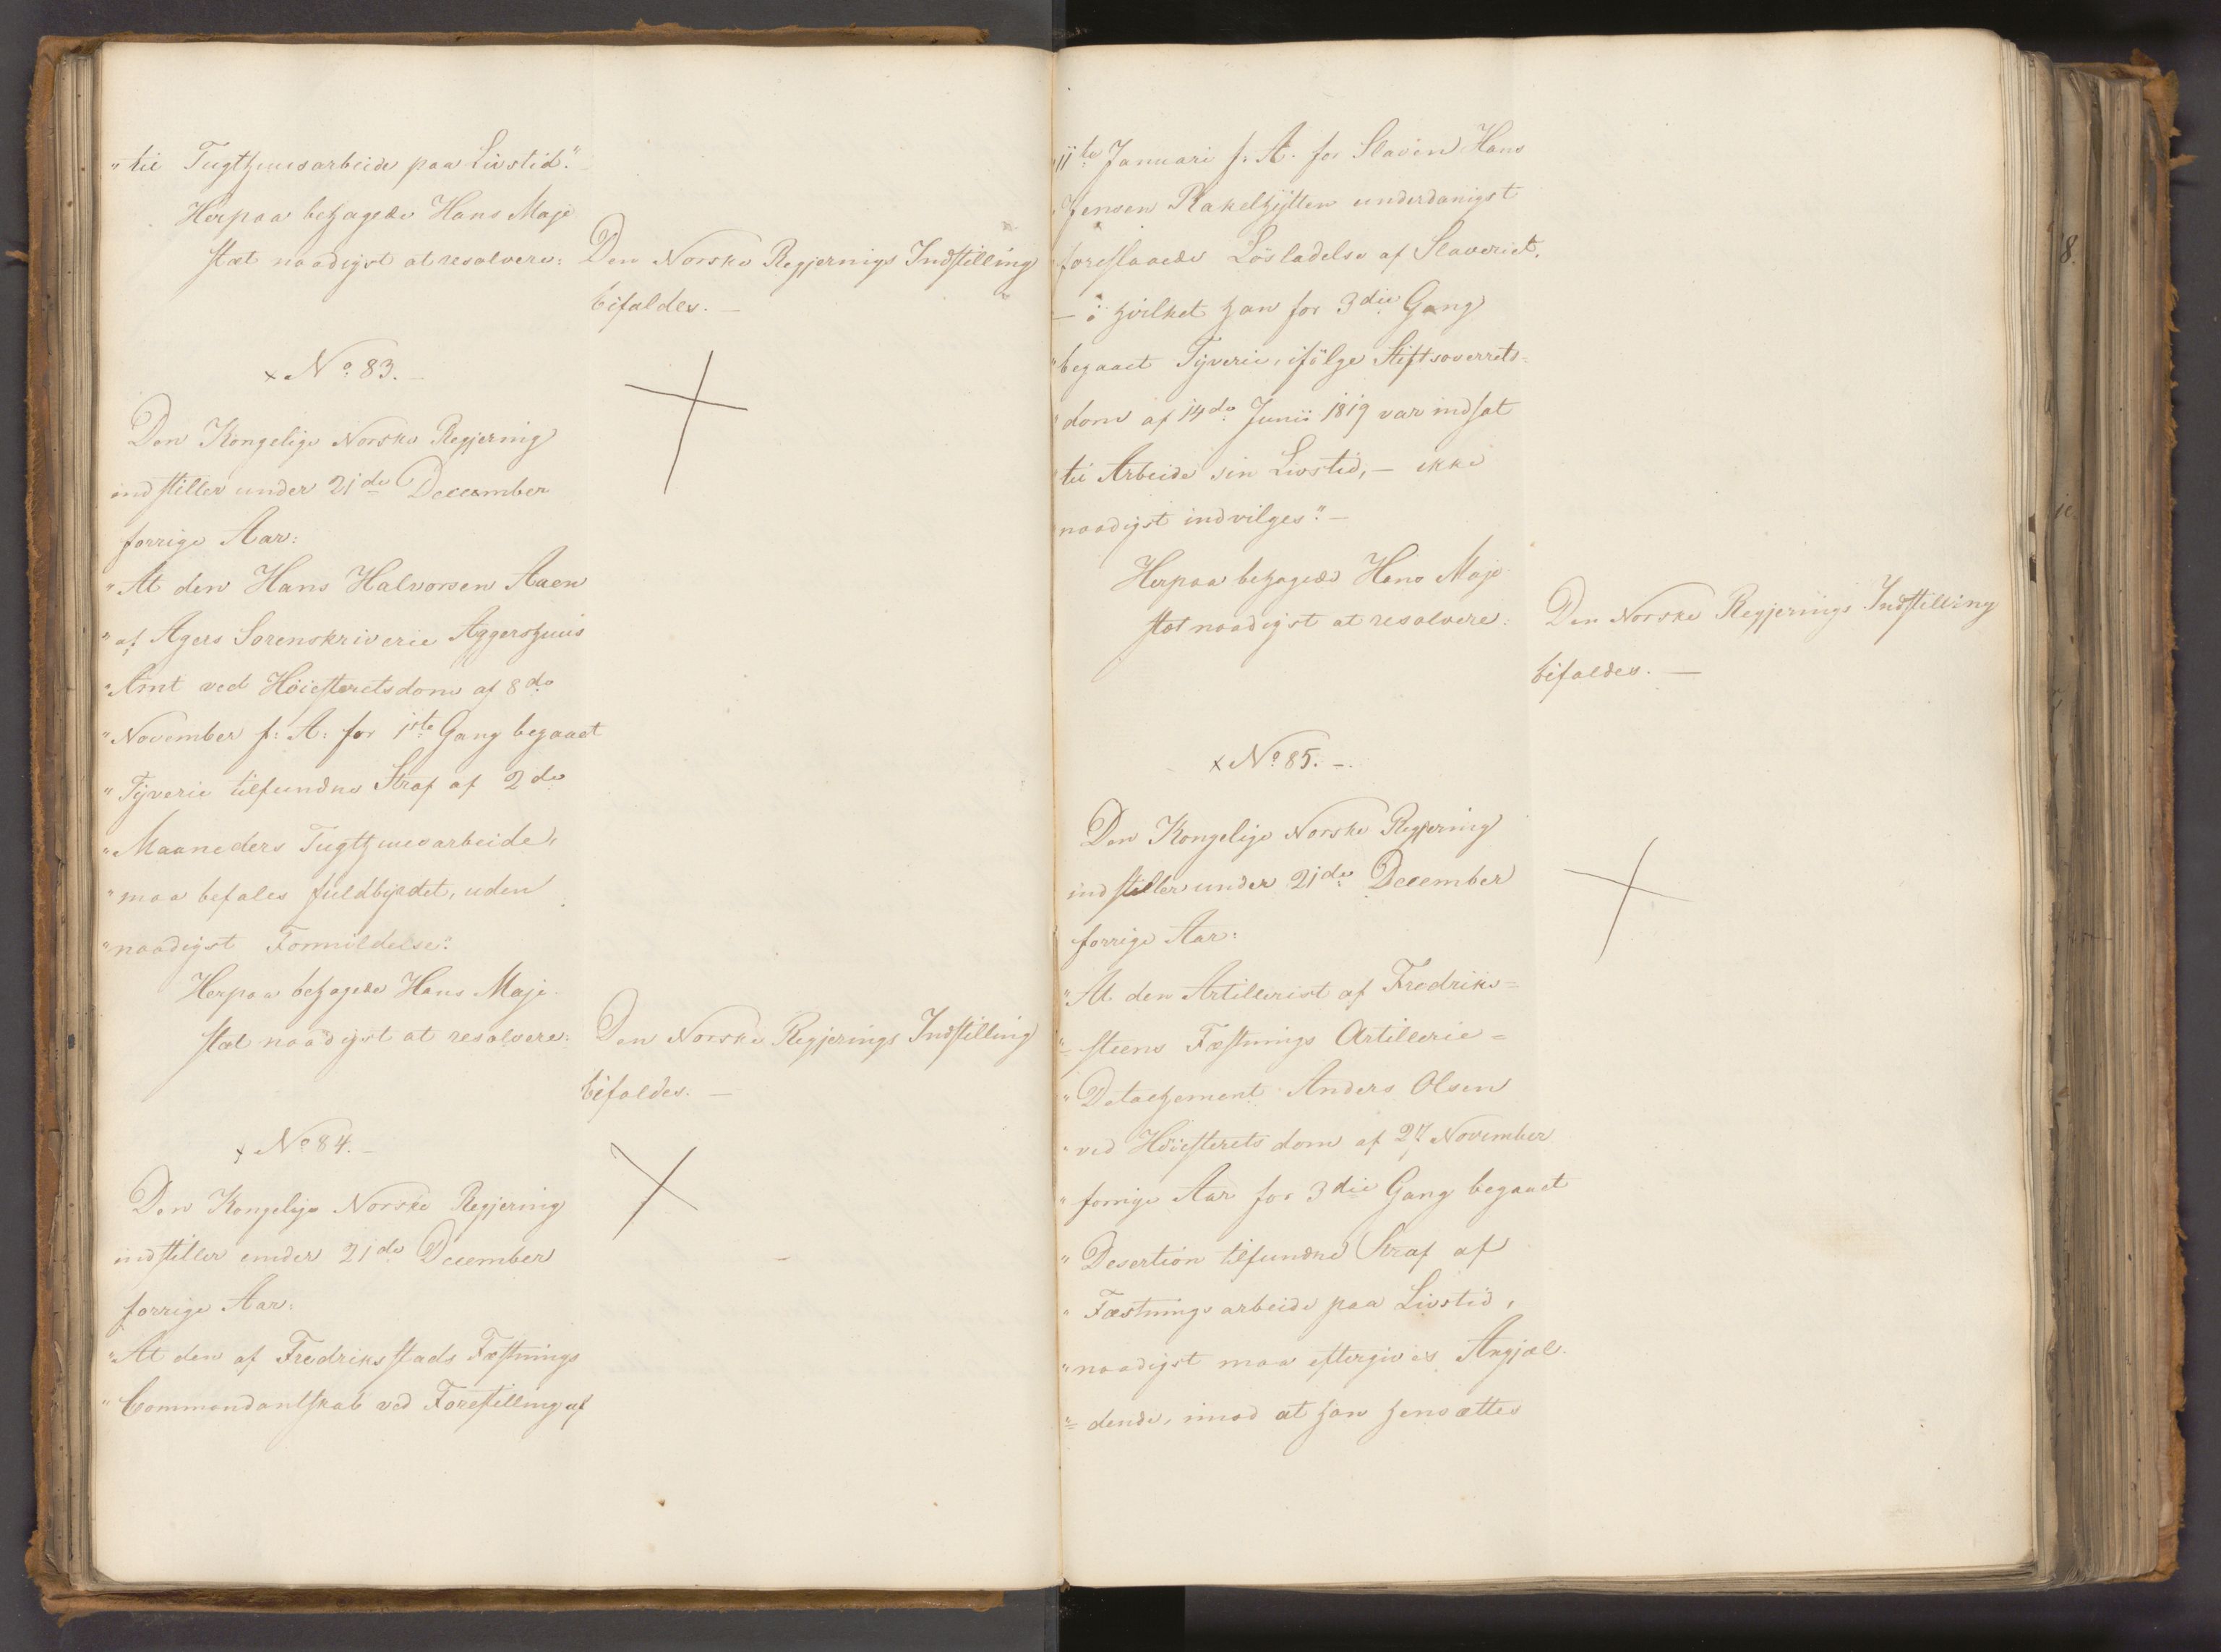 "til Tugthuusarbeide paa Livstid."
Herpaa behagede Hans Maje
stæt naadigst at resolvere:
Den Norske Regjerings Indstilling
bifaldes. —
x No 83. —
Den Kongelige Norske Regjering
indstiller under 21de December
forrige Aar:
"At den Hans Halvorsen Aaen
"af Agers Sorenskriverie Aggershuus
"Amt ved Höiesteretsdom af 8de
"November f: A: for 1ste Gang begaaet
"Tyverie tilfundne Straf af 2de
"Maaneders Tugthuusarbeide,
"maa befales fuldbyrdet, uden
"naadigst Formildelse."
Herpaa behagede Hans Maje-
stæt naadigst at resolvere:
Den Norske Regjerings Indstilling
bifaldes. —
x No 84. —
Den Kongelige Norske Regjering
indstiller under 21de December
forrige Aar:
"At den af Fredriksstads Fæstnings
"Commandantskab ved Forestilling af
"11te Januari f. A. for Slaven Hans
"Jensen Rakelhytten underdanigst
foreslaaede Lösladelse af Slaveriet,
— i hvilket han for 3die Gang
"begaaet Tyverie, ifölge Stiftsoverrets-
"dom af 14de Junii 1819 var indsat
"til Arbeide sin Livstid, — ikke
naadigst indvilges". —
Herpaa behagede Hans Maje-
stæt naadigst at resolvere:
Den Norske Regjerings Indstilling
bifaldes. —
x No 85. —
Den Kongelige Norske Regjering
indstiller under 21de December
forrige Aar:
"At den Artillerist af Fredriks=
"=steens Fæstnings Artillerie=
"Detachement Anders Olsen
"ved Höiesterets dom af 27 November
"forrige Aar for 3die Gang begaaet
"Desertion tilfundne Straf af
"Fæstningsarbeide paa Livstid,
"naadigst maa eftergives Angjæl-
"=dende, imod at han hensættes